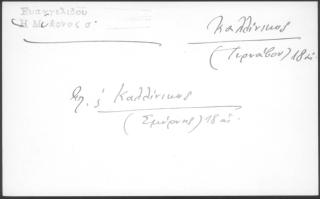 Ευαγγελίδου
Η Μύκονος σ.
Καλλίνικος
(Τυρνάβου) 18 αἰ.
Βλ. ἐ Καλλίνικος
(Σμύρνης) 18 αἰ.